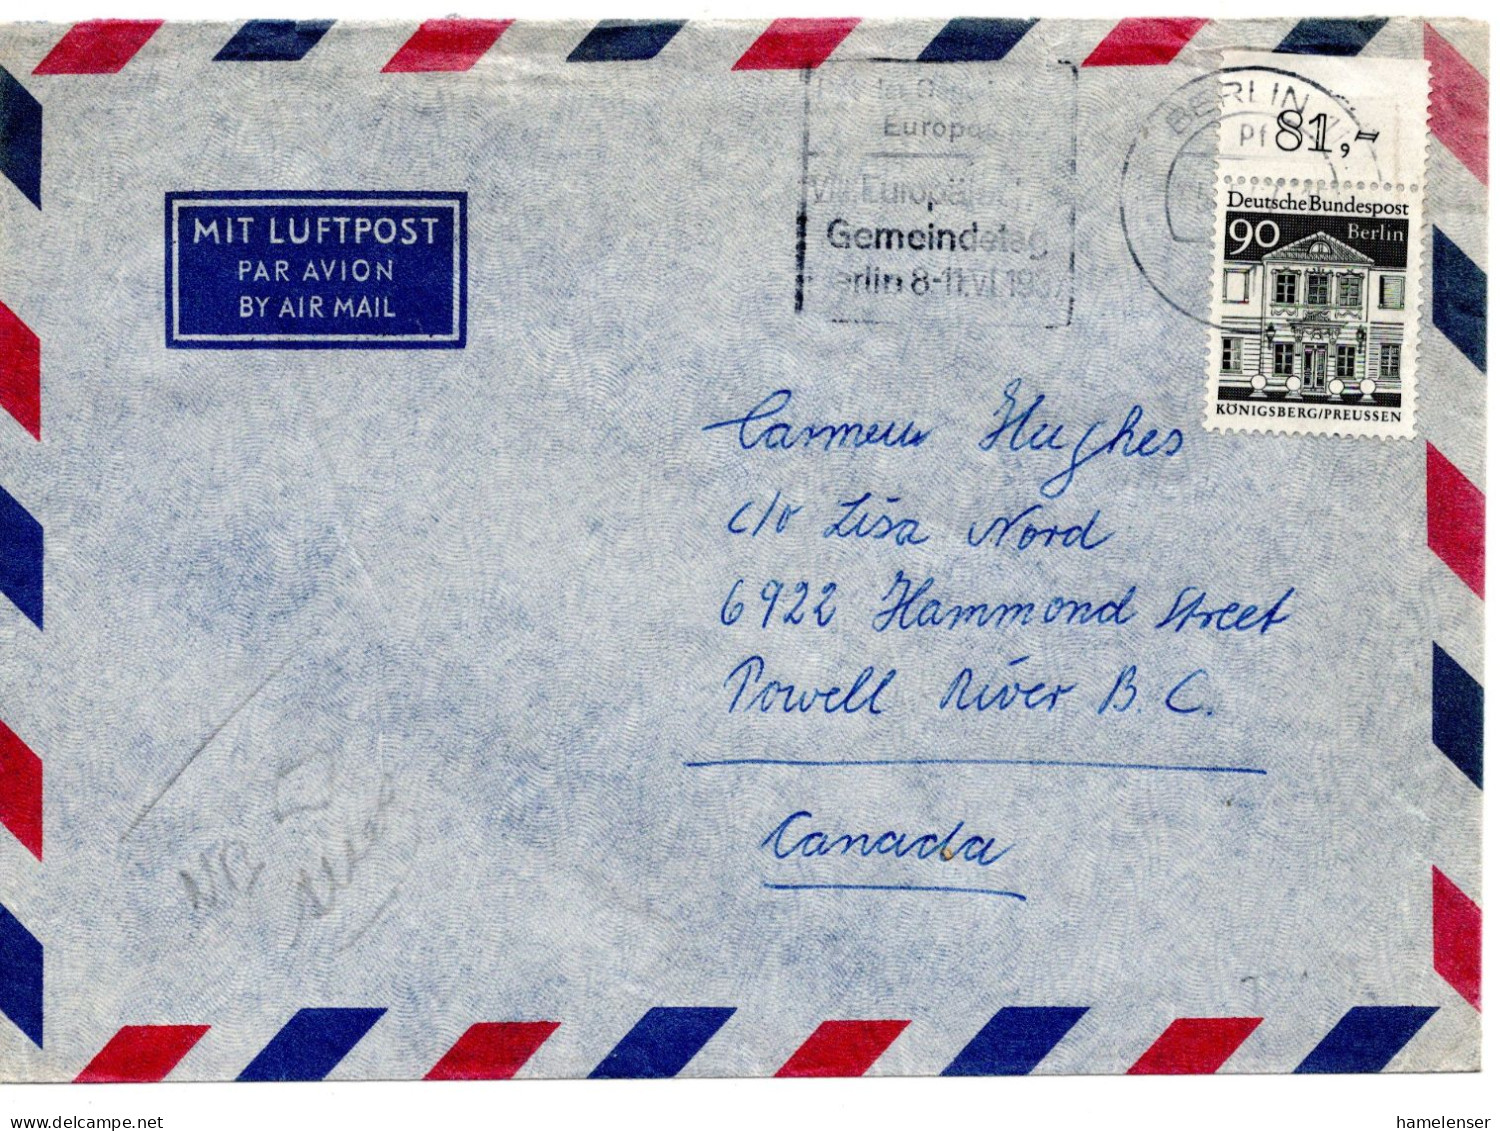 Europas
VIII. Europäischer
Gemeindetag
Berlin 8-11.VI.1967
BERLIN
Pf 81,-
Deutsche Bundespost
90 Berlin
KÖNIGSBERG/PREUSSEN
MIT LUFTPOST
PAR AVION
BY AIR MAIL
Carmen Hughes
c/o Lisa Nord
6922 Hammond Street
Powell River B.C.
Canada
hamelenser